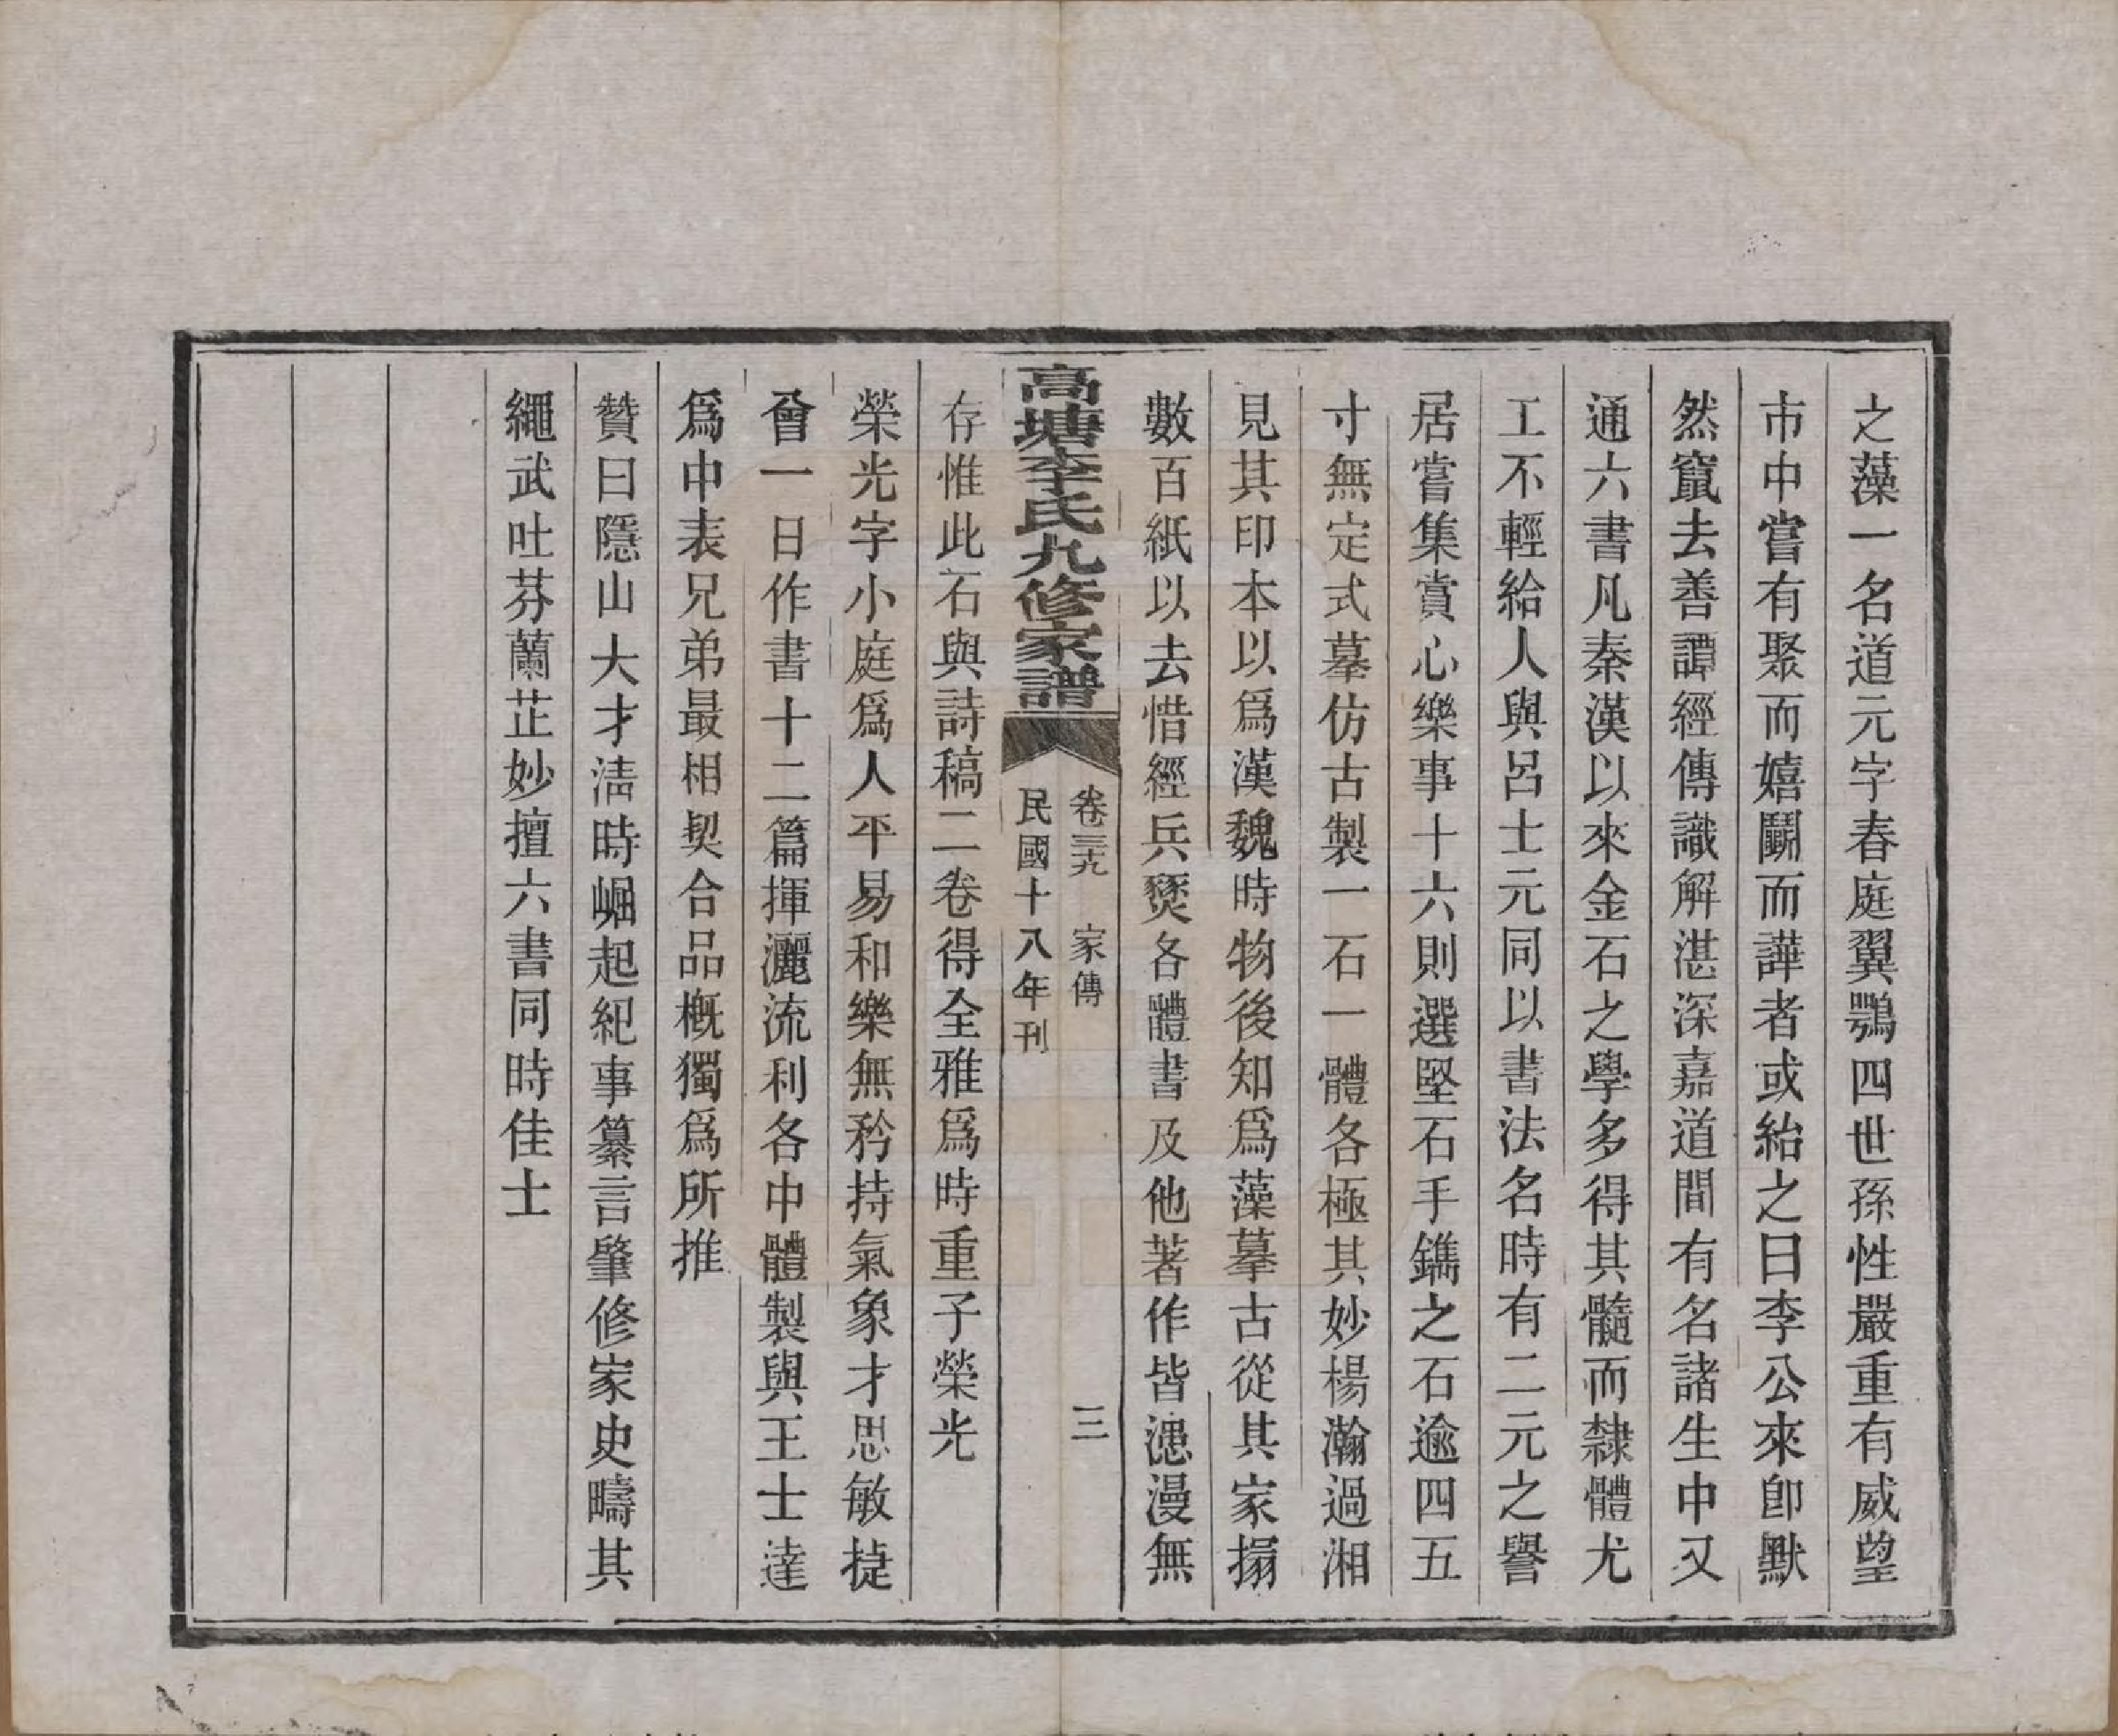 之藻一名道元字春庭翼鶚四世孫性嚴重有威望
市中嘗有聚而嬉鬬而譁者或紿之曰李公來卽默
然竄去善譚經傳識解湛深嘉道間有名諸生中又
通六書凡秦漢以來金石之學多得其髓而隸體尤
工不輕給人與呂士元同以書法名時有二元之譽
居嘗集賞心樂事十六則選堅石手鐫之石逾四五
寸無定式摹仿古製一石一體各極其妙楊瀚過湘
見其印本以爲漢魏時物後知爲藻摹古從其家搨
數百紙以去惜經兵燹各體書及他著作皆漶漫無
高塘李氏九修家譜
卷三九 家傳
三
民國十八年刊
存惟此石與詩稿二卷得全雅爲時重子榮光
榮光字小庭爲人平易和樂無矜持氣象才思敏捷
會一日作書十二篇揮灑流利各中體製與王士達
爲中表兄弟最相契合品槪獨爲所推
贊曰隱山大才淸時崛起紀事纂言肇修家史疇其
繩武吐芬蘭芷妙擅六書同時佳士